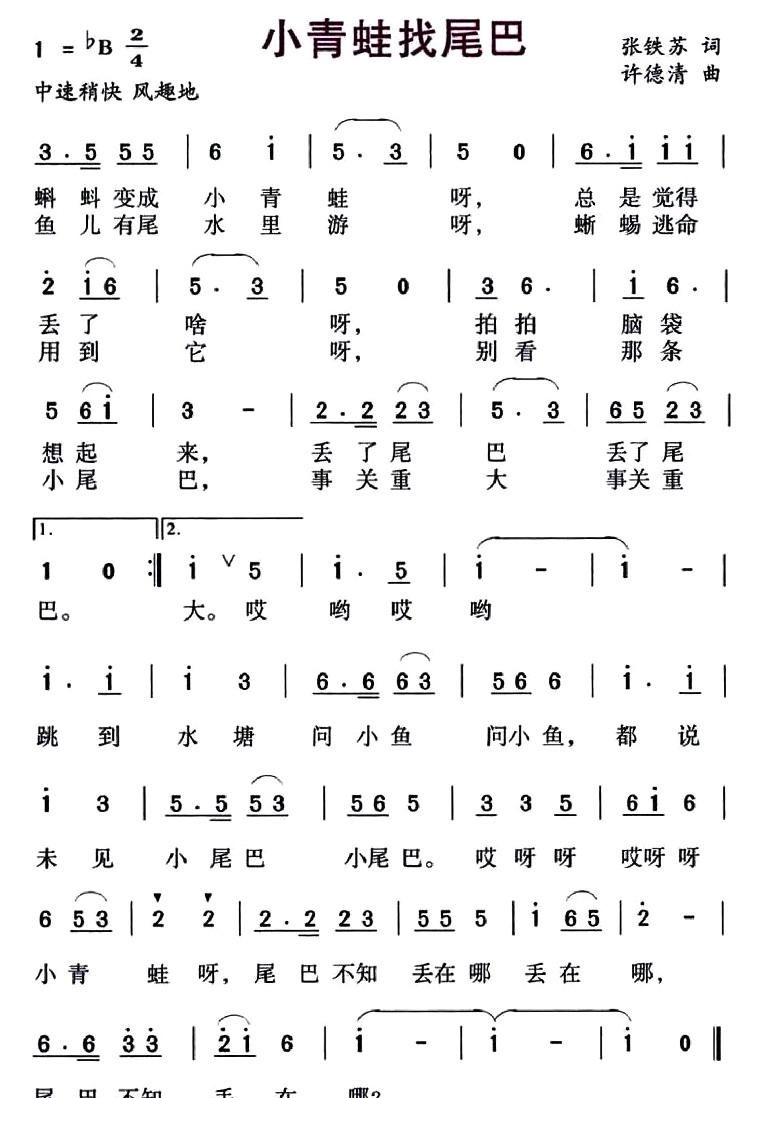 小青蛙找尾巴
1 = ♭B 2/4
张铁苏 词
许德清 曲
中速稍快 风趣地
3 . 5 5 5 | 6 i | 5 . 3 | 5 0 | 6 . i i i |
蝌 蚪 变成 小 青 蛙 呀, 总 是 觉得
鱼 儿 有尾 水 里 游 呀, 蜥 蜴 逃命
2̇ i 6 | 5 . 3 | 5 0 | 3 6 . | i 6 . |
丢 了 啥 呀, 拍 拍 脑 袋
用 到 它 呀, 别 看 那 条
5 6 i | 3 - | 2 . 2 2 3 | 5 . 3 | 6 5 2 3 |
想 起 来, 丢 了 尾 巴 丢了 尾
小 尾 巴, 事 关 重 大 事关 重
1. 2.
1 0 :‖ i ∨ 5 | i . 5 | i - | i - |
巴。 大。 哎 哟 哎 哟
i . i | i 3 | 6 . 6 6 3 | 5 6 6 | i . i |
跳 到 水 塘 问 小 鱼 问小 鱼, 都 说
i 3 | 5 . 5 5 3 | 5 6 5 | 3 3 5 | 6 i 6 |
未 见 小 尾 巴 小尾 巴。 哎 呀 呀 哎呀 呀
6 5 3 | 2 2 | 2 . 2 2 3 | 5 5 5 | i 6 5 | 2̇ - |
小 青 蛙 呀, 尾 巴 不知 丢在 哪 丢 在 哪,
6 . 6 3̇ 3̇ | 2̇ i 6 | i - | i - | i 0 ‖
尾 巴 不知 丢 在 哪?